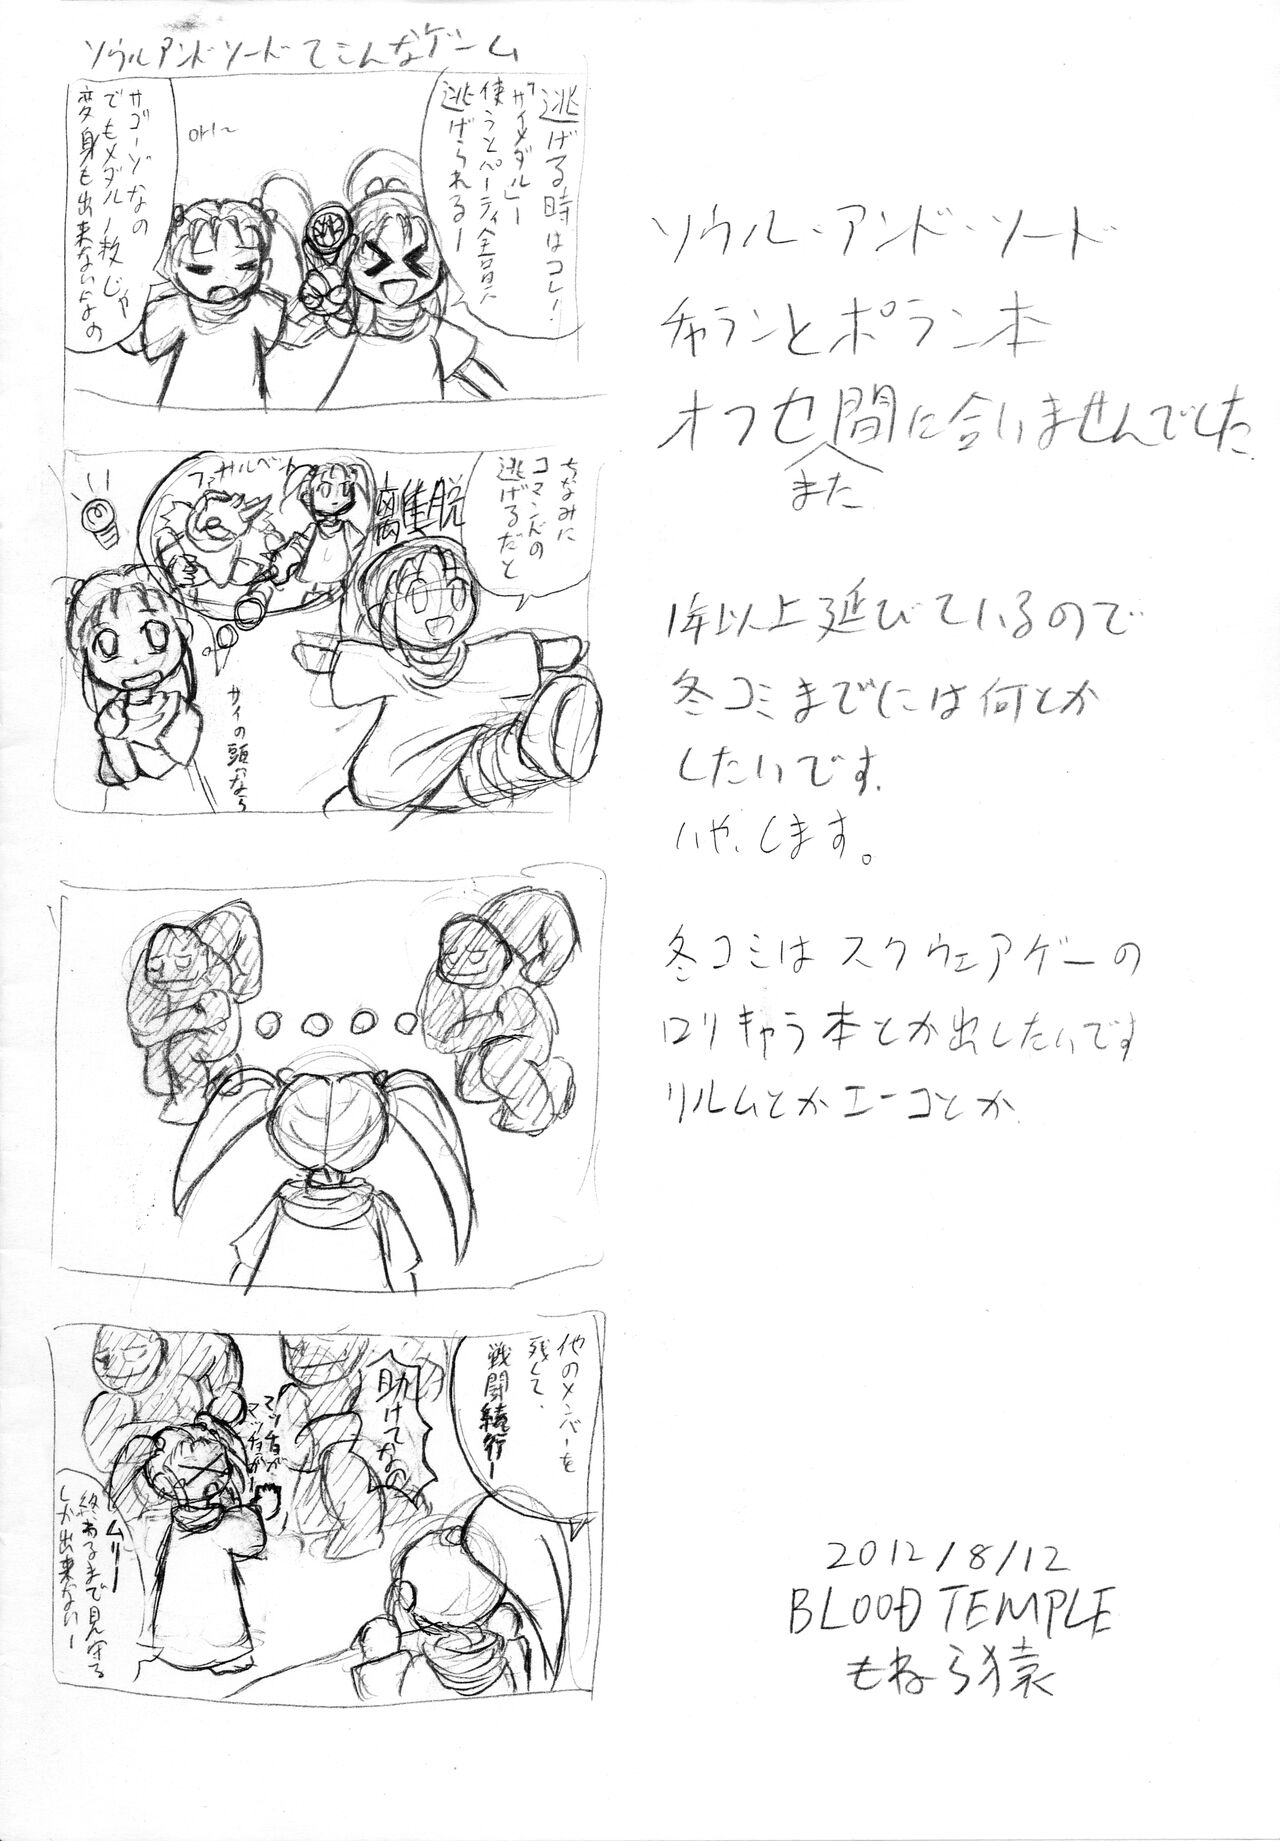 ソウルアンドソードてこんなゲーム
逃げる時はコレ!
「サイメダル」ー
使うとパーティ全員
逃げられるー
サゴーゾなの
でもメダル1枚じゃ
変身も出来ないよなの
ちなみに
コマンドの
逃げるだと
離脱
ファイナルベント
サイの頭かなら
他のメンバーを
残して、
戦闘続行ー
助けてなの
マッチョが
マッチョがー
ムリー
終わるまで見守る
しか出来ないー
ソウル・アンド・ソード
チャランとポラン本
オフセ間に合いませんでした
また
1年以上延びているので
冬コミまでには何とか
したいです.
いや、します。
冬コミはスクウェアゲーの
ロリキャラ本とか出したいです
リルムとかエーコとか
2012/8/12
BLOOD TEMPLE
もねら猿